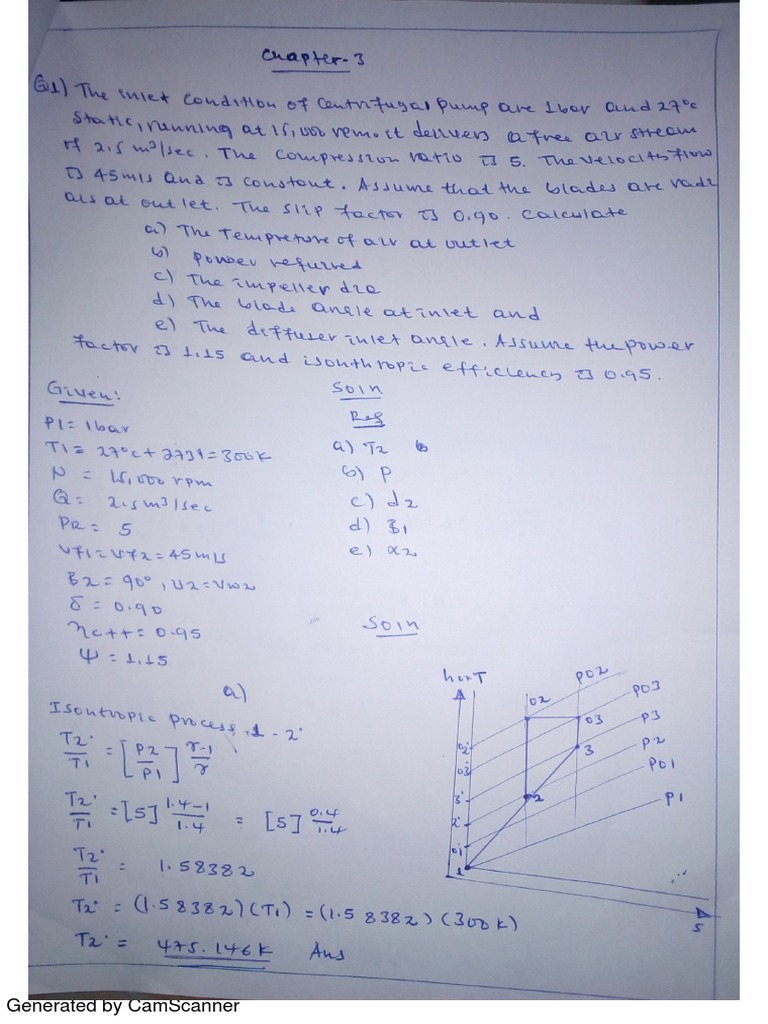 Chapter-3
Q1) The inlet condition of centrifugal pump are 1bar and 27°c
static, running at 15,000 rpm. it delivers a free air stream
of 2.5 m³/sec. The compression ratio is 5. The velocity flow
is 45m/s and is constant. Assume that the blades are radi
als at outlet. The slip factor is 0.90. Calculate
a) The Tempreture of air at outlet
b) power requrred
c) The impeller dia
d) The blade angle at inlet and
e) The diffuser inlet angle. Assume the power
factor is 1.15 and isonthropic efficiency is 0.95.
Given:
Soln
Req
P1 = 1bar
T1 = 27°c + 273 = 300K
N = 15,000 rpm
Q = 2.5 m³/sec
PR = 5
Vf1 = Vf2 = 45m/s
B2 = 90°, U2 = Vw2
δ = 0.90
ηc++ = 0.95
Ψ = 1.15
a) T2
b) P
c) d2
d) B1
e) α2
Soln
a)
Isontropic process 1 - 2'
T2'/T1 = [P2/P1] γ-1/γ
T2'/T1 = [5] 1.4-1/1.4 = [5] 0.4/1.4
T2'/T1 = 1.58382
T2' = (1.58382)(T1) = (1.58382)(300K)
T2' = 475.146K Ans
h or T
02
P02
P03
03
P3
3
P2
P01
P1
02'
03'
3'
2'
01
1
2
S
Generated by CamScanner